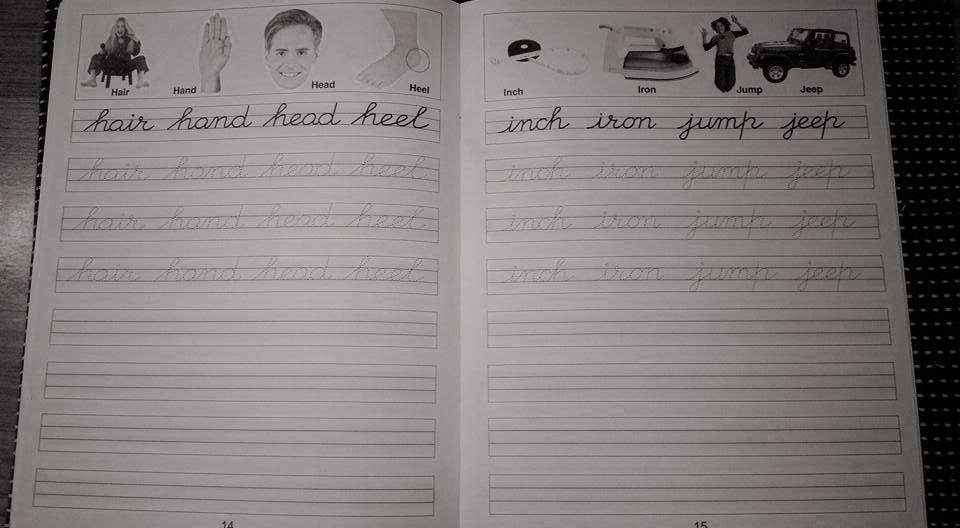 Hair Hand Head Heel
hair hand head heel
hair hand head heel
hair hand head heel
hair hand head heel
14
Inch Iron Jump Jeep
inch iron jump jeep
inch iron jump jeep
inch iron jump jeep
inch iron jump jeep
15